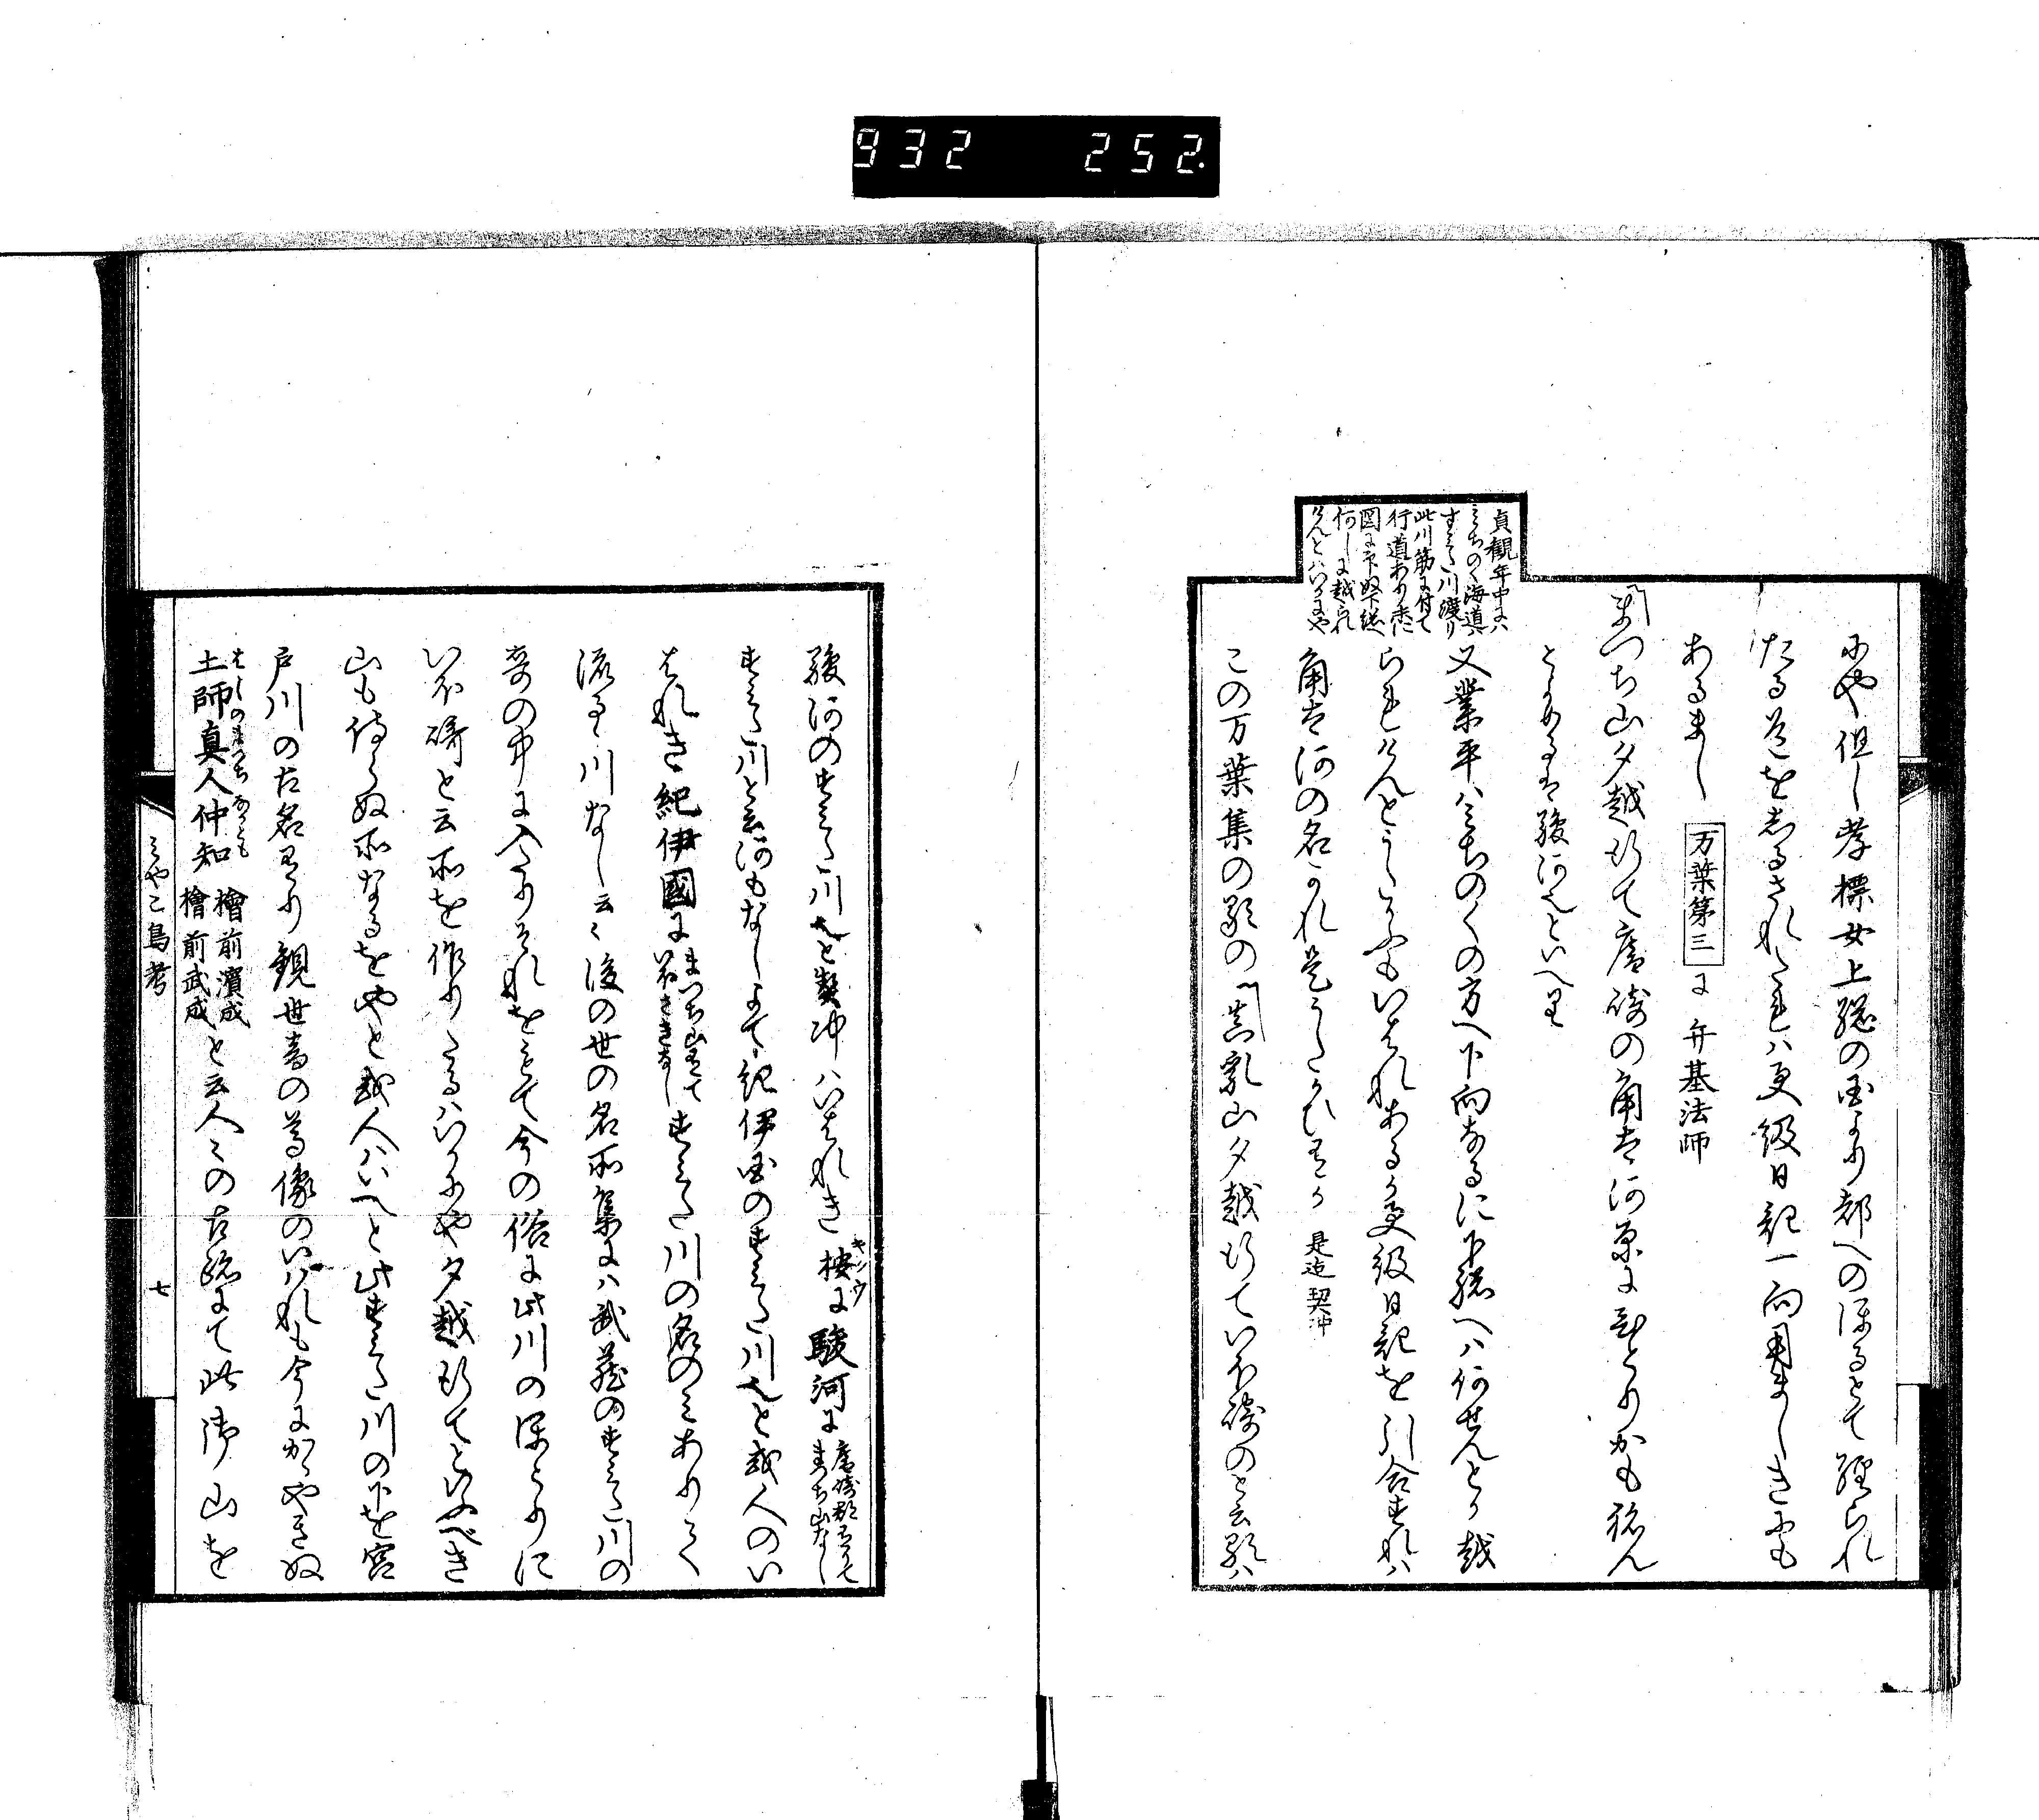 932 252
貞観年中には
みちのく海道は
すみた川渡り
此川筋に付て
行道あり
にや但し孝標女上総の国より都へのほるとて経られ
たる道をしるされたれは更級日記一向用ましきにも
あるまし 万葉第三に 弁基法師
まつち山夕越行て庵崎の角太河原にひとりかもねん
とあるは駿河也といへり
又業平はみちのくの方へ下向なるに下総へは何せんとか越
られけんとうたかふもいはれあるか更級日記を引合すれは
角太河の名かれ是うたかひ有か 是迄契沖
この万葉集の歌の 真乳山夕越行ていほ崎のと云歌は
駿河のすみた川也と契沖はいはれき 按に駿河に 庵崎郡ありて まつち山なし
すみた川と云河もなしよて紀伊国のすみた川也と或人のい
はれき紀伊國に まつち山有て いほさきなし すみた川の名のみありて
流るゝ川なし云々後の世の名所集には武蔵のすみた川の
哥の中に入たりそれをもて今の俗に此川のほとりに
いほ崎と云所を作りたるはいかにや夕越行てといふべき
山も侍らぬ所なるをやと或人はいへと此すみた川の下を宮
戸川の古名有り観世音の尊像のいはれも今にかゝやきぬ
土師真人仲知 檜前濱成 檜前武成 と云人々の古跡にて此御山を
みやこ鳥考 七